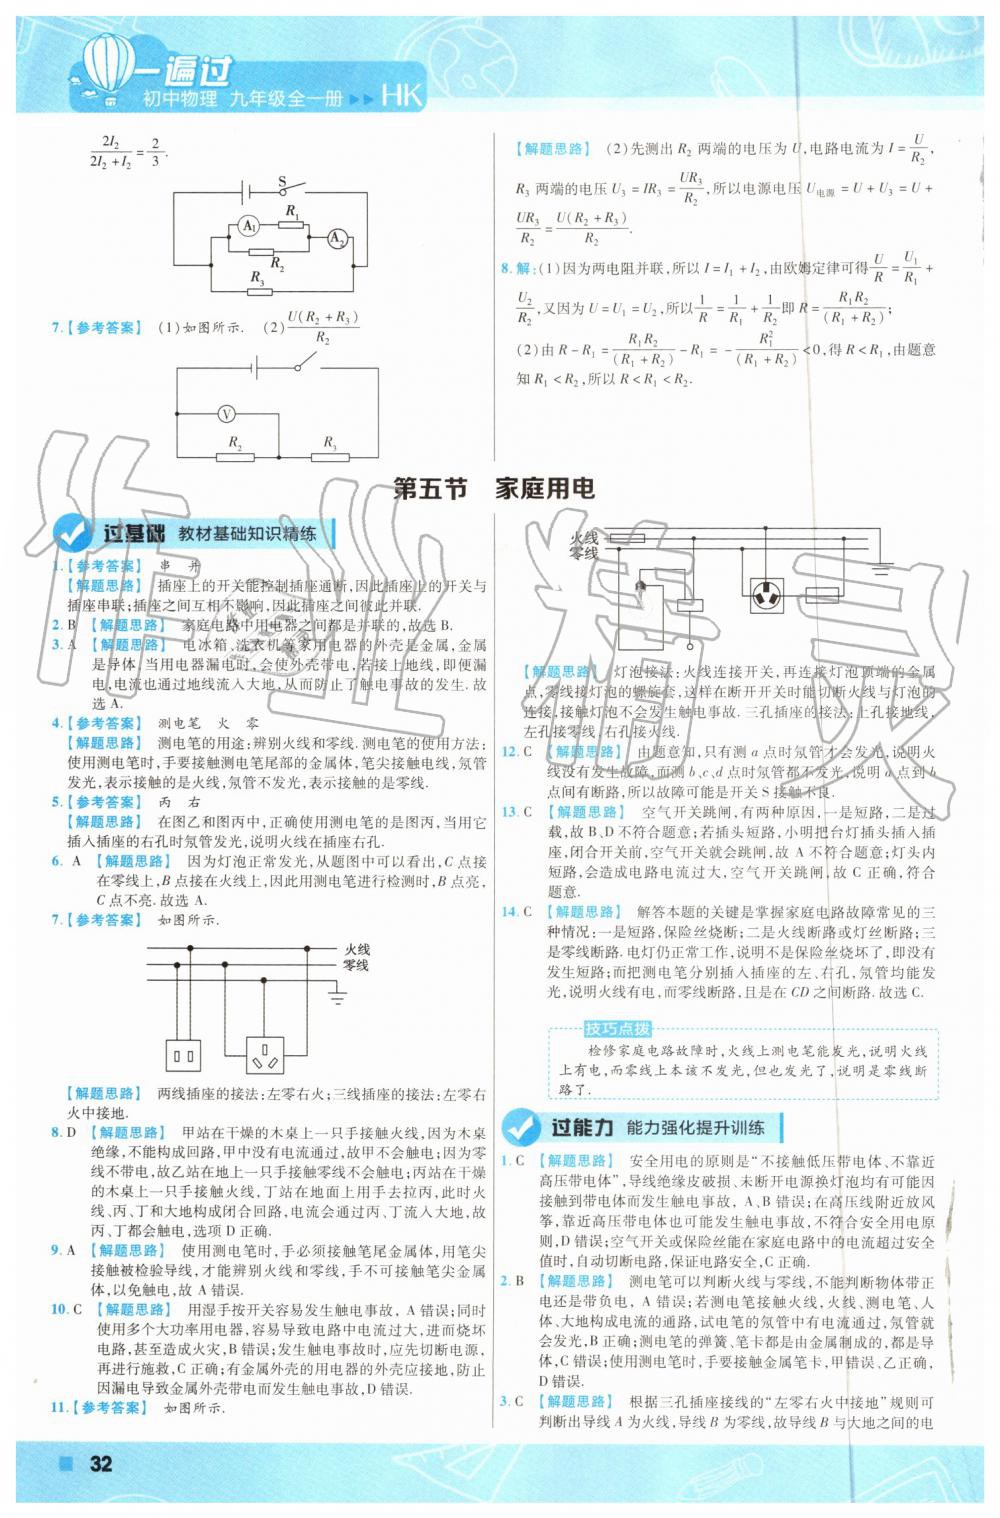 一遍过
初中物理 九年级全一册 ▶▶ HK
2I₂/(2I₂+I₂)=2/3.
S
R₁
A₁
A₂
R₂
R₃
7.【参考答案】 (1)如图所示. (2)U(R₂+R₃)/R₂
V
R₂ R₃
【解题思路】 (2)先测出 R₂ 两端的电压为 U,电路电流为 I=U/R₂,
R₃ 两端的电压 U₃=IR₃=UR₃/R₂,所以电源电压 U电源=U+U₃=U+
UR₃/R₂=U(R₂+R₃)/R₂.
8.解:(1)因为两电阻并联,所以 I=I₁+I₂,由欧姆定律可得U/R=U₁/R₁+
U₂/R₂,又因为 U=U₁=U₂,所以1/R=1/R₁+1/R₂即 R=R₁R₂/(R₁+R₂);
(2)由 R-R₁=R₁R₂/(R₁+R₂)-R₁=-R₁²/(R₁+R₂)<0,得 R<R₁,由题意
知 R₁<R₂,所以 R<R₁<R₂.
第五节 家庭用电
过基础 教材基础知识精练
1.【参考答案】 串 并
【解题思路】 插座上的开关能控制插座通断,因此插座上的开关与
插座串联;插座之间互相不影响,因此插座之间彼此并联.
2. B 【解题思路】 家庭电路中用电器之间都是并联的,故选 B.
3. A 【解题思路】 电冰箱、洗衣机等家用电器的外壳是金属,金属
是导体,当用电器漏电时,会使外壳带电,若接上地线,即便漏
电,电流也通过地线流入大地,从而防止了触电事故的发生.故
选 A.
4.【参考答案】 测电笔 火 零
【解题思路】 测电笔的用途:辨别火线和零线.测电笔的使用方法:
使用测电笔时,手要接触测电笔尾部的金属体,笔尖接触电线,氖管
发光,表示接触的是火线,氖管不发光,表示接触的是零线.
5.【参考答案】 丙 右
【解题思路】 在图乙和图丙中,正确使用测电笔的是图丙,当用它
插入插座的右孔时氖管发光,说明火线在插座右孔.
6. A 【解题思路】 因为灯泡正常发光,从题图中可以看出,C 点接
在零线上,B 点接在火线上,因此用测电笔进行检测时,B 点亮,
C 点不亮.故选 A.
7.【参考答案】 如图所示.
火线
零线
【解题思路】 两线插座的接法:左零右火;三线插座的接法:左零右
火中接地.
8. D 【解题思路】 甲站在干燥的木桌上一只手接触火线,因为木桌
绝缘,不能构成回路,甲中没有电流通过,故甲不会触电;因为零
线不带电,故乙站在地上一只手接触零线不会触电;丙站在干燥
的木桌上一只手接触火线,丁站在地面上用手去拉丙,此时火
线、丙、丁和大地构成闭合回路,电流会通过丙、丁流入大地,故
丙、丁都会触电,选项 D 正确.
9. A 【解题思路】 使用测电笔时,手必须接触笔尾金属体,用笔尖
接触被检验导线,才能辨别火线和零线,手不可接触笔尖金属
体,以免触电,故 A 错误.
10. C 【解题思路】 用湿手按开关容易发生触电事故, A 错误;同时
使用多个大功率用电器,容易导致电路中电流过大,进而烧坏
电路,甚至造成火灾, B 错误;发生触电事故时,应先切断电源,
再进行施救, C 正确;有金属外壳的用电器的外壳应接地,防止
因漏电导致金属外壳带电而发生触电事故, D 错误.
11.【参考答案】 如图所示.
火线
零线
【解题思路】 灯泡接法:火线连接开关,再连接灯泡顶端的金属
点,零线接灯泡的螺旋套,这样在断开开关时能切断火线与灯泡的
连接,接触灯泡不会发生触电事故.三孔插座的接法:上孔接地线,
左孔接零线,右孔接火线.
12. C 【解题思路】 由题意知,只有测 a 点时氖管才会发光,说明火
线没有发生故障,而测 b、c、d 点时氖管都不发光,说明 a 点到 b
点间有断路,所以故障可能是开关 S 接触不良.
13. C 【解题思路】 空气开关跳闸,有两种原因,一是短路,二是过
载,故 B、D 不符合题意;若插头短路,小明把台灯插头插入插
座,闭合开关前,空气开关就会跳闸,故 A 不符合题意;灯头内
短路,会造成电路电流过大,空气开关跳闸,故 C 正确,符合
题意.
14. C 【解题思路】 解答本题的关键是掌握家庭电路故障常见的三
种情况:一是短路,保险丝烧断;二是火线断路或灯丝断路;三
是零线断路.电灯仍正常工作,说明不是保险丝烧坏了,即没有
发生短路;而把测电笔分别插入插座的左、右孔,氖管均能发
光,说明火线有电,而零线断路,且是在 CD 之间断路.故选 C.
技巧点拨
检修家庭电路故障时,火线上测电笔能发光,说明火线
上有电,而零线上本该不发光,但也发光了,说明是零线断
路了.
过能力 能力强化提升训练
1. C 【解题思路】 安全用电的原则是“不接触低压带电体、不靠近
高压带电体”,导线绝缘皮破损、未断开电源换灯泡均有可能因
接触到带电体而发生触电事故, A、B 错误;在高压线附近放风
筝,靠近高压带电体也可能发生触电事故,不符合安全用电原
则, D 错误;空气开关或保险丝能在家庭电路中的电流超过安全
值时,自动切断电路,保证电路安全, C 正确.
2. B 【解题思路】 测电笔可以判断火线与零线,不能判断物体带正
电还是带负电, A 错误;若测电笔接触火线,火线、测电笔、人
体、大地构成电流的通路,试电笔的氖管中有电流通过,氖管就
会发光, B 正确;测电笔的弹簧、笔卡都是由金属制成的,都是导
体, C 错误;使用测电笔时,手要接触金属笔卡,甲错误、乙正确,
D 错误.
3. C 【解题思路】 根据三孔插座接线的“左零右火中接地”规则可
判断出导线 A 为火线,导线 B 为零线,故导线 B 与大地之间的电
32
作业精灵